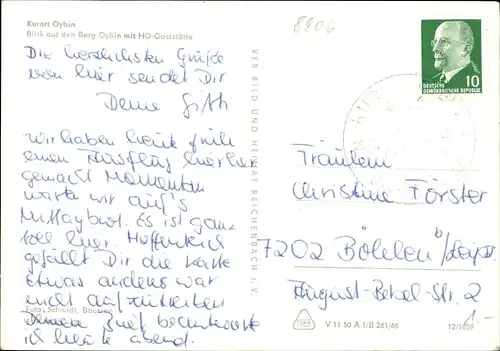 8806
Kurort Oybin
Blick auf den Berg Oybin mit HO-Gaststätte
Die herzlichsten Grüße
von hier sendet Dir
Deine
Wir haben heute früh
einen Ausflug hierher
gemacht Momentan
warten wir auf's
Mittagbrot. Es ist ganz
toll hier. Hoffentlich
gefällt Dir die Karte
etwas anderes war
nicht aufzutreiben
Deinen Brief beantworte
ich heute abend.
Foto: Schmidt, Bautzen
VEB BILD UND HEIMAT REICHENBACH i. V.
10
DEUTSCHE
DEMOKRATISCHE REPUBLIK
Fräulein
Christine Förster
7202 Böhlen b/Leipz.
August-Bebel-Str. 2
V 11 50 A 1/B 261/66
1.-